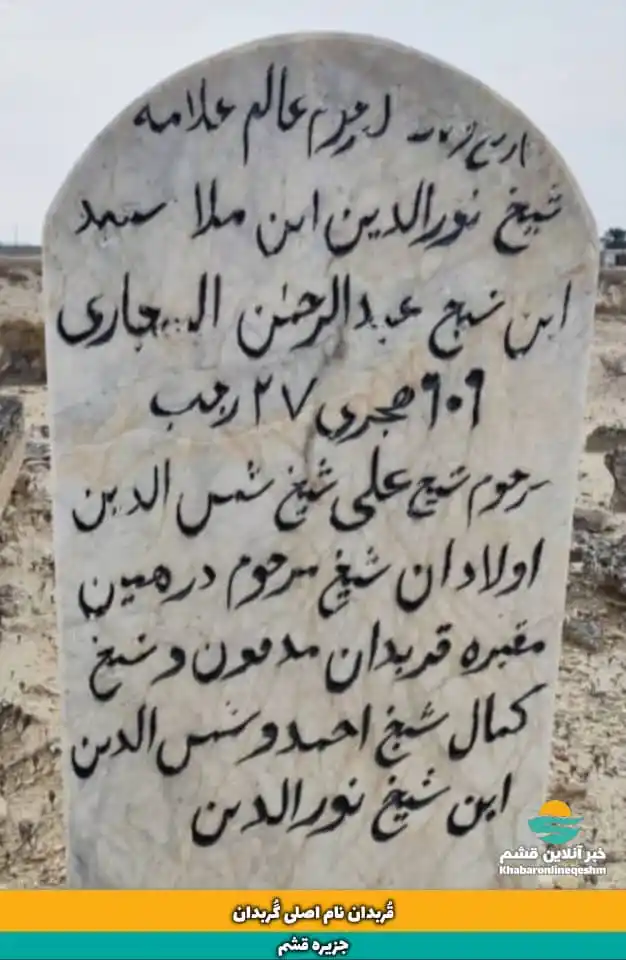 مرحوم عالم علامه
شیخ نورالدین ابن ملا
ابن شیخ عبدالرحمٰن
۹۰۹ هجری ۲۷ رجب
مرحوم شیخ علی شیخ شمس الدین
اولادان شیخ مرحوم درهمین
مقبره قدبدان مدفون و شیخ
کمال شیخ احمد و شمس الدین
ابن شیخ نورالدین
خبر آنلاین قشم
Khabaronlineqeshm
قُربدان نام اصلی گُربدان
جزیره قشم